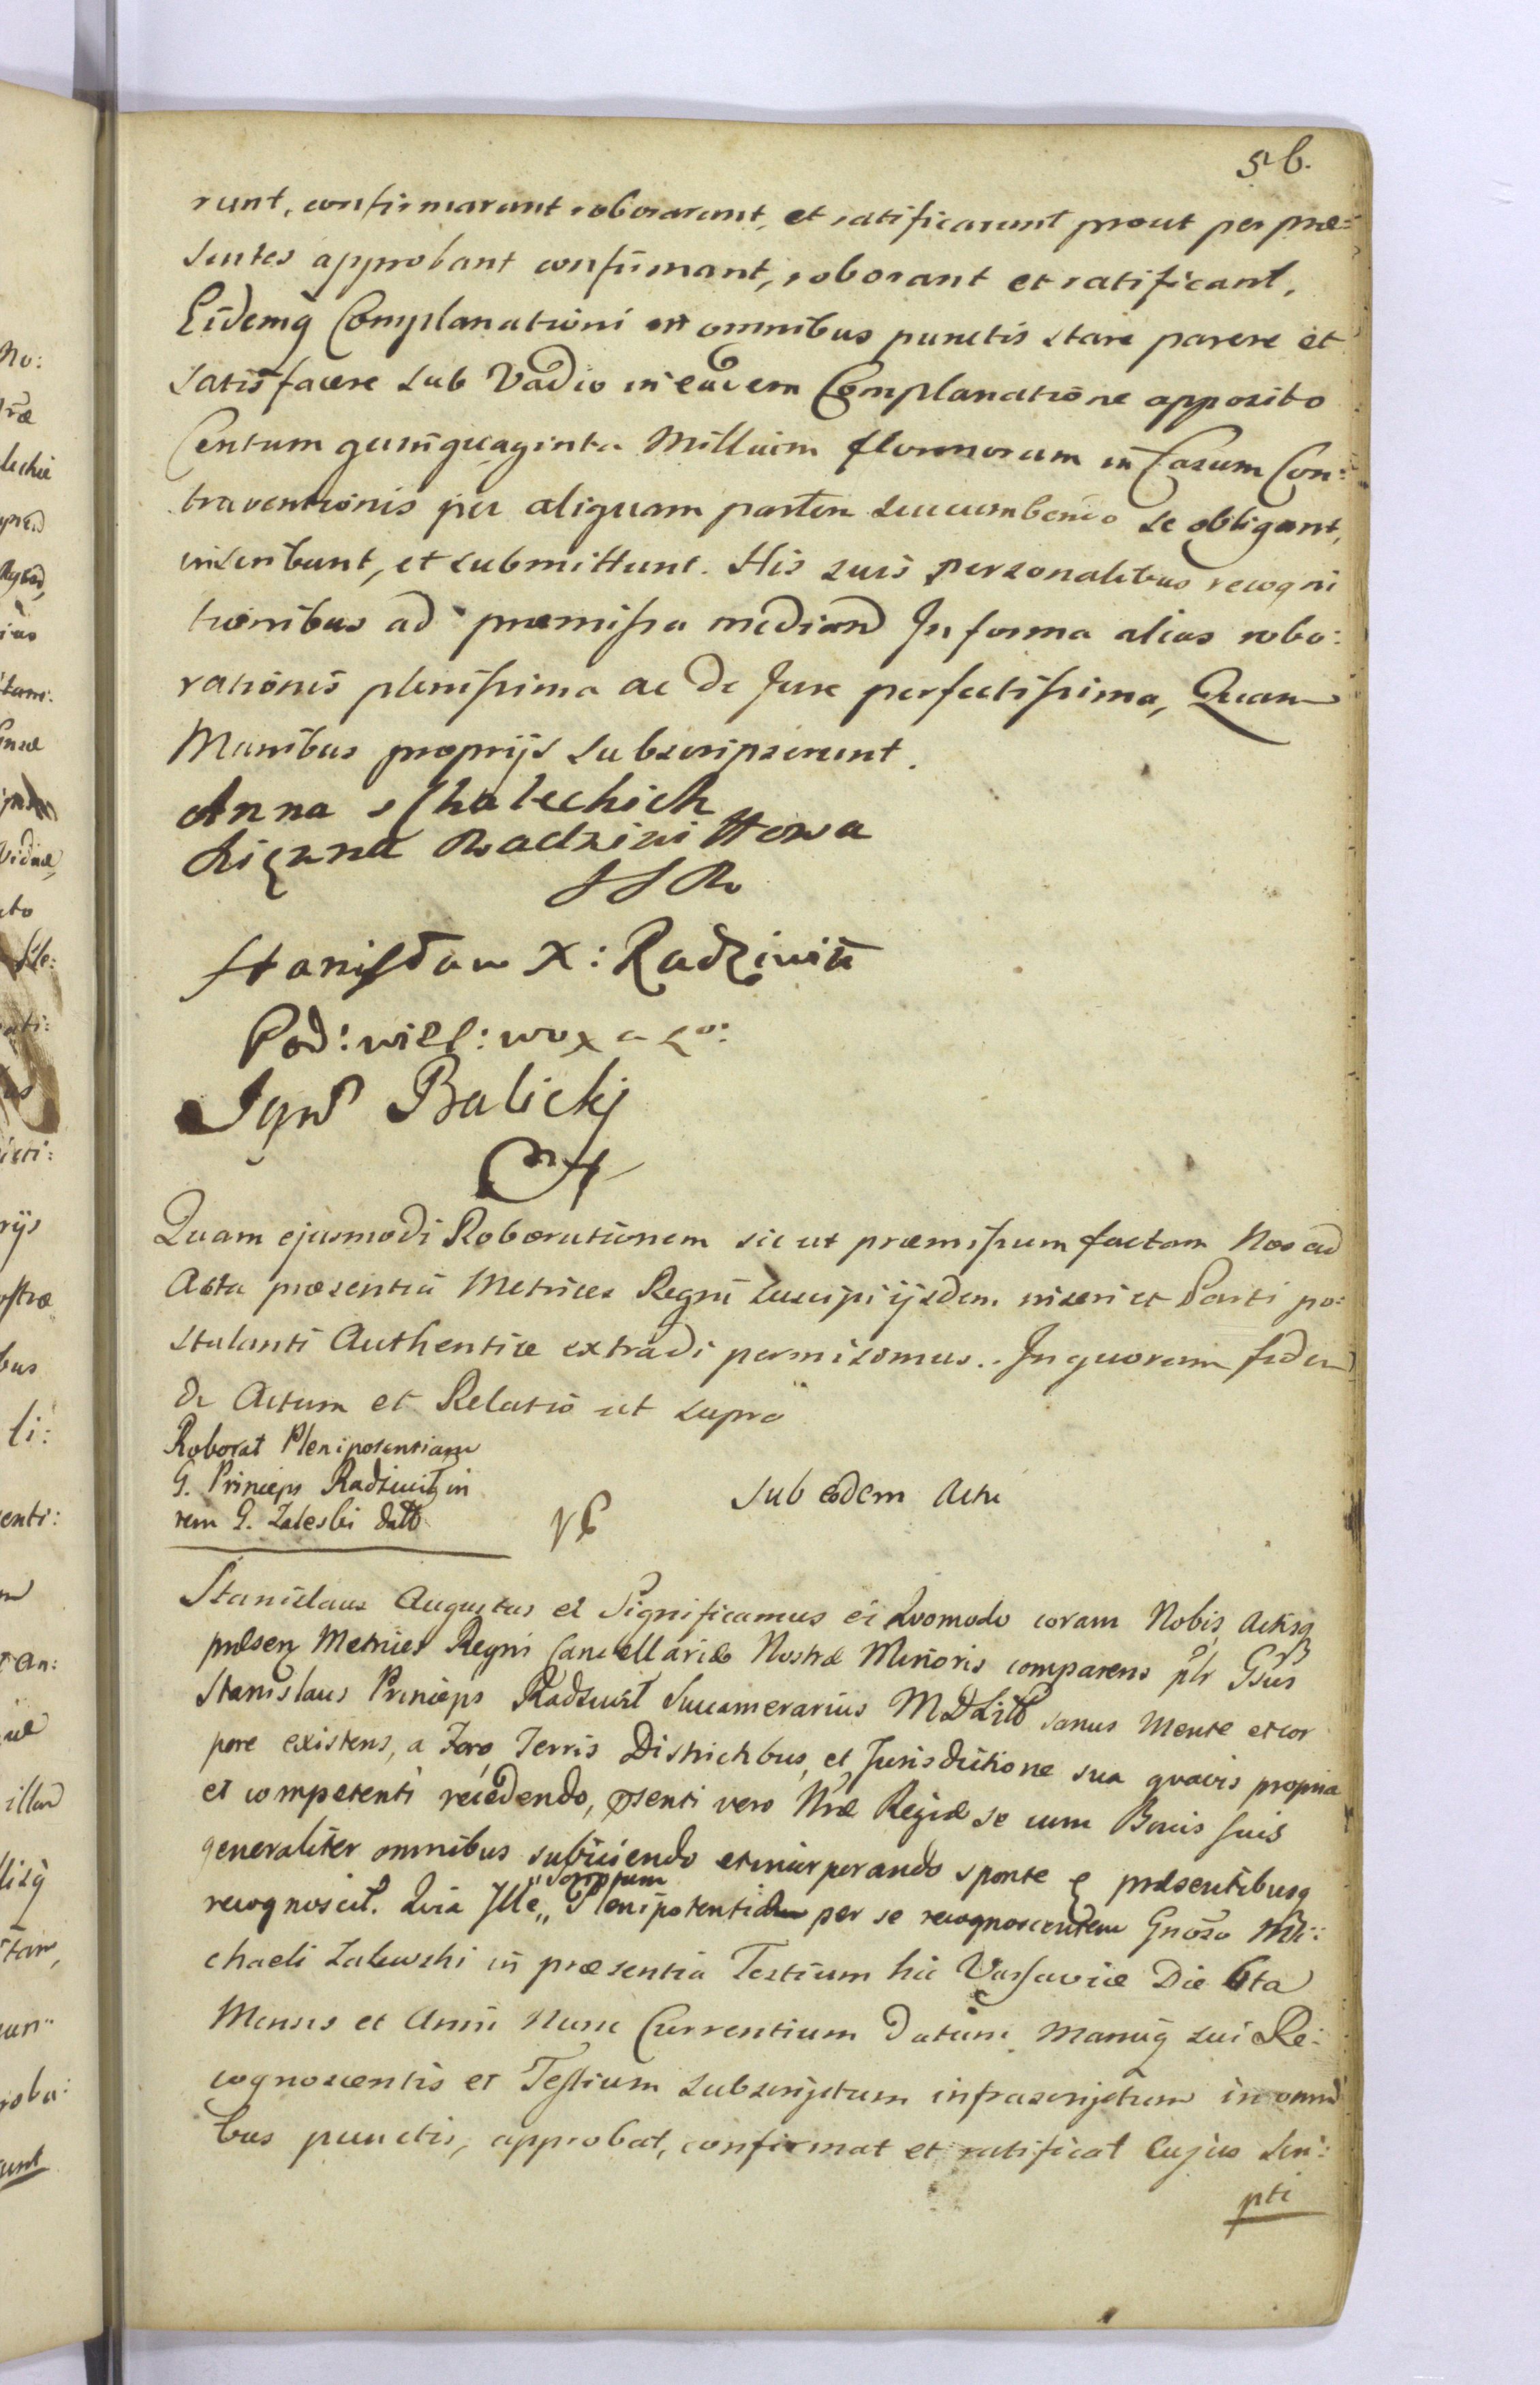 56.
runt, confirmarunt roborarunt, et ratificarunt prout per præ=
sentes approbant confirmant, roborant et ratificant,
Eidemq Complanationi in omnibus punctis stare parere et
satisfacere sub Vadio in eadem Complanatione apposito
Centum quinquaginta Millium florenorum in Casum Con:
traventionis per aliquam partem succumbendo se obligant,
inscribunt, et submittunt. His suis personalibus recogni
tionibus ad præmissa median In forma alias robo:
rationis plenissima ac de Jure perfectissima, Quam
Manibus proprijs subscripserunt.
Anna s Chalechich
Xięzna Radziwiłłowa
Stanisław X: Radziwiłł
Pod: wiel: wo x
Ign Balicki
Quam ejusmodi Roborationem sic ut præmissum factam Nos ad
Acta præsentia Metrices Regni suscipi ijsdem inseri et Parti po:
stulanti Authentice extradi permisimus. In quorum fidem
Dt Actum et Relatio ut supra
Roborat Plenipotentiam
G. Princeps Radziwił in
rem G. Zaleski datt
Sub eodem Actu
Stanislaus Augustus et Significamus et Quomodo coram Nobis Actisq
præsen Metrices Regni Cancellariæ Nostræ Minoris comparens plr Gsus
Stanislaus Princeps Radziwił Succamerarius M D Litt sanus Mente et cor
pore existens, a Foro Terris Districtibus, et Jurisdictione sua quavis propria
et competenti recedendo, psenti vero Nræ Regiæ se cum Bonis suis
generaliter omnibus subiiciendo et incorporando sponte præsentibusq
recognovit. Quia Ille,,
scriptum
Plenipotentiæ per se recognoscentem Gnoso Mi:
chaeli Zalewski in præsentia Testium hic Varsaviæ Die 6ta
Mensis et Anni Nunc Currentium Datum, manuq sui Re:
cognoscentis et Testium subscriptum infrascriptum in omni
bus punctis, approbat, confirmat et ratificat Cujus Scri:
pti